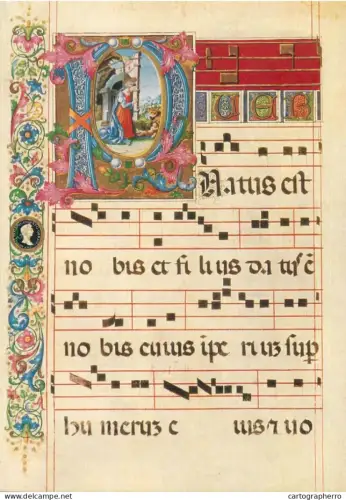 PUER
Natus est
no bis et fi li us da tus ē
no bis cuius ipe riuʒ sup
hu meruʒ e ius ⁊ uo
delcampe.net
cartographero